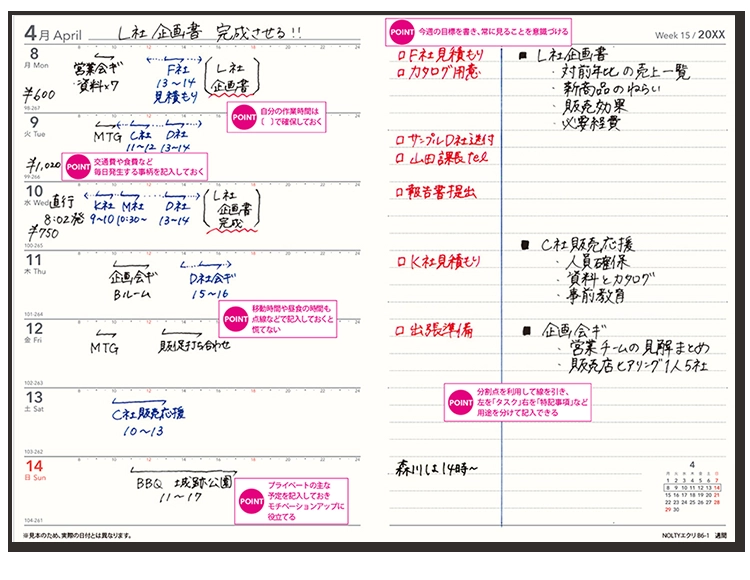 4月 April
L社 企画書 完成させる!!
8
月 Mon
8 10 12 14 16 18 20 22 24
営業会ギ
資料×7
F社
13〜14
見積もり
(L社
企画書)
¥600
98-267
POINT
自分の作業時間は
( )で確保しておく
9
火 Tue
MTG
C社
11〜12
D社
13〜14
¥1,020
99-266
POINT
交通費や食費など
毎日発生する事柄を記入しておく
10
水 Wed
直行
8:02発
K社
9〜10
M社
10:30〜
D社
13〜14
(L社
企画書
完成)
¥750
100-265
11
木 Thu
企画会ギ
Bルーム
D社会ギ
15〜16
101-264
POINT
移動時間や昼食の時間も
点線などで記入しておくと
慌てない
12
金 Fri
MTG
販促打ち合わせ
102-263
13
土 Sat
C社販売応援
10〜13
103-262
14
日 Sun
BBQ 城跡公園
11〜17
104-261
POINT
プライベートの主な
予定を記入しておき
モチベーションアップに
役立てる
※見本のため、実際の日付とは異なります。
POINT
今週の目標を書き、常に見ることを意識づける
Week 15 / 20XX
□ F社見積もり
□ カタログ用意
□ サンプルD社送付
□ 山田課長tel
□ 報告書提出
□ K社見積もり
□ 出張準備
■ L社企画書
・対前年比の売上一覧
・新商品のねらい
・販売効果
・必要経費
■ C社販売応援
・人員確保
・資料とカタログ
・事前教育
■ 企画会ギ
・営業チームの見解まとめ
・販売店ヒアリング1人5社
POINT
分割点を利用して線を引き、
左を「タスク」右を「特記事項」など
用途を分けて記入できる
森川は14時〜
4
月 火 水 木 金 土 日
1 2 3 4 5 6 7
8 9 10 11 12 13 14
15 16 17 18 19 20 21
22 23 24 25 26 27 28
29 30
NOLTYエクリB6-1 週間